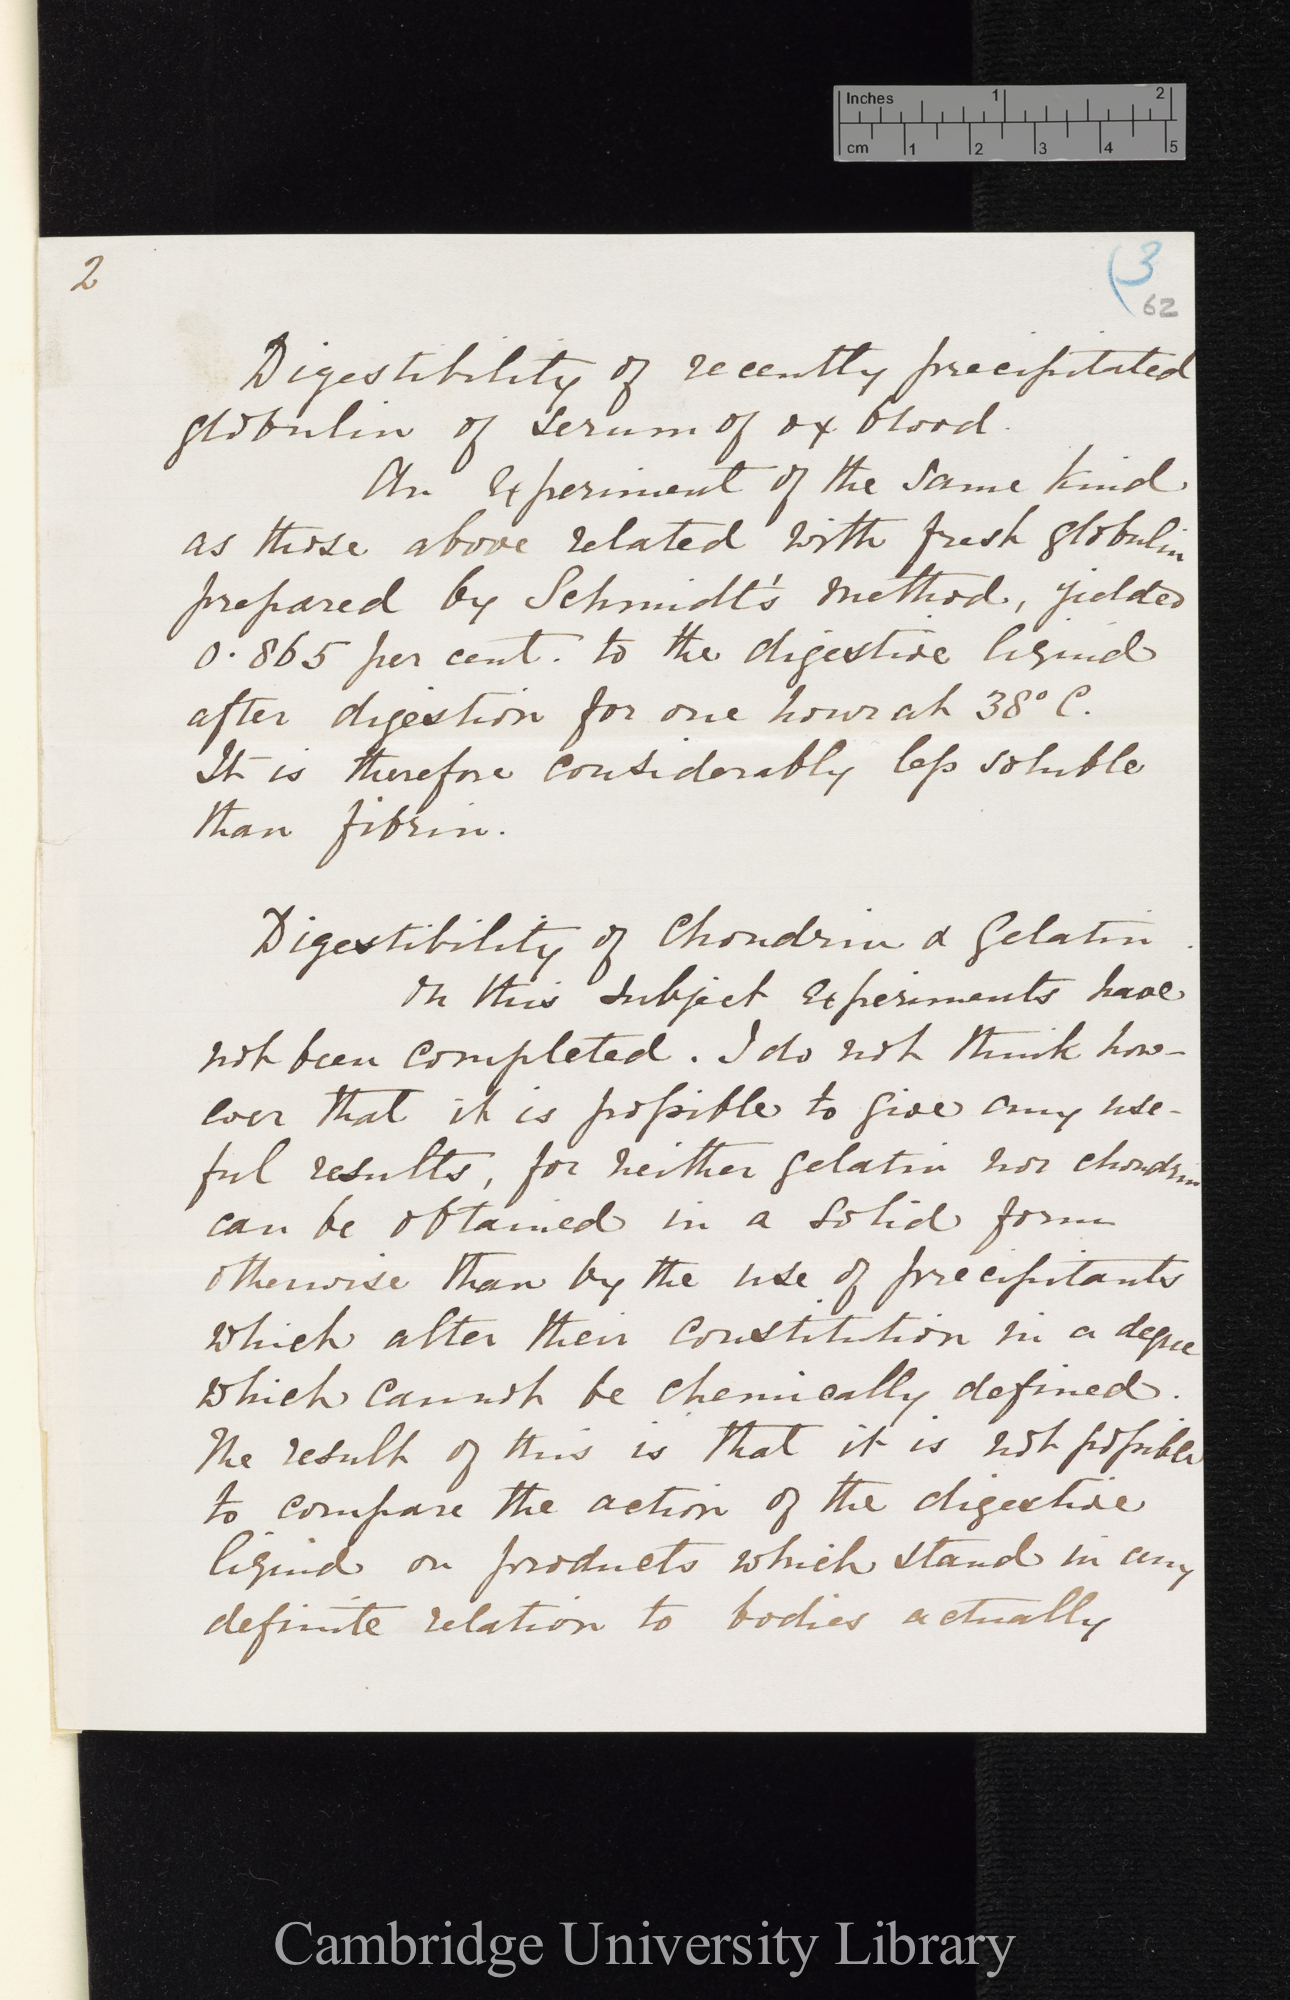 Inches 1 2
cm 1 2 3 4 5
2
(3
62
Digestibility of recently precipitated
globulin of serum of ox blood.
An experiment of the same kind
as those above related with fresh globulin
prepared by Schmidt's method, yielded
0.865 per cent. to the digestive liquid
after digestion for one hour at 38° C.
It is therefore considerably less soluble
than fibrin.
Digestibility of Chondrin & Gelatin.
On this subject experiments have
not been completed. I do not think how-
ever that it is possible to give any use-
ful results, for neither gelatin nor chondrin
can be obtained in a solid form
otherwise than by the use of precipitants
which alter their constitution in a degree
which cannot be chemically defined.
The result of this is that it is not possible
to compare the action of the digestive
liquid on products which stand in any
definite relation to bodies actually
Cambridge University Library